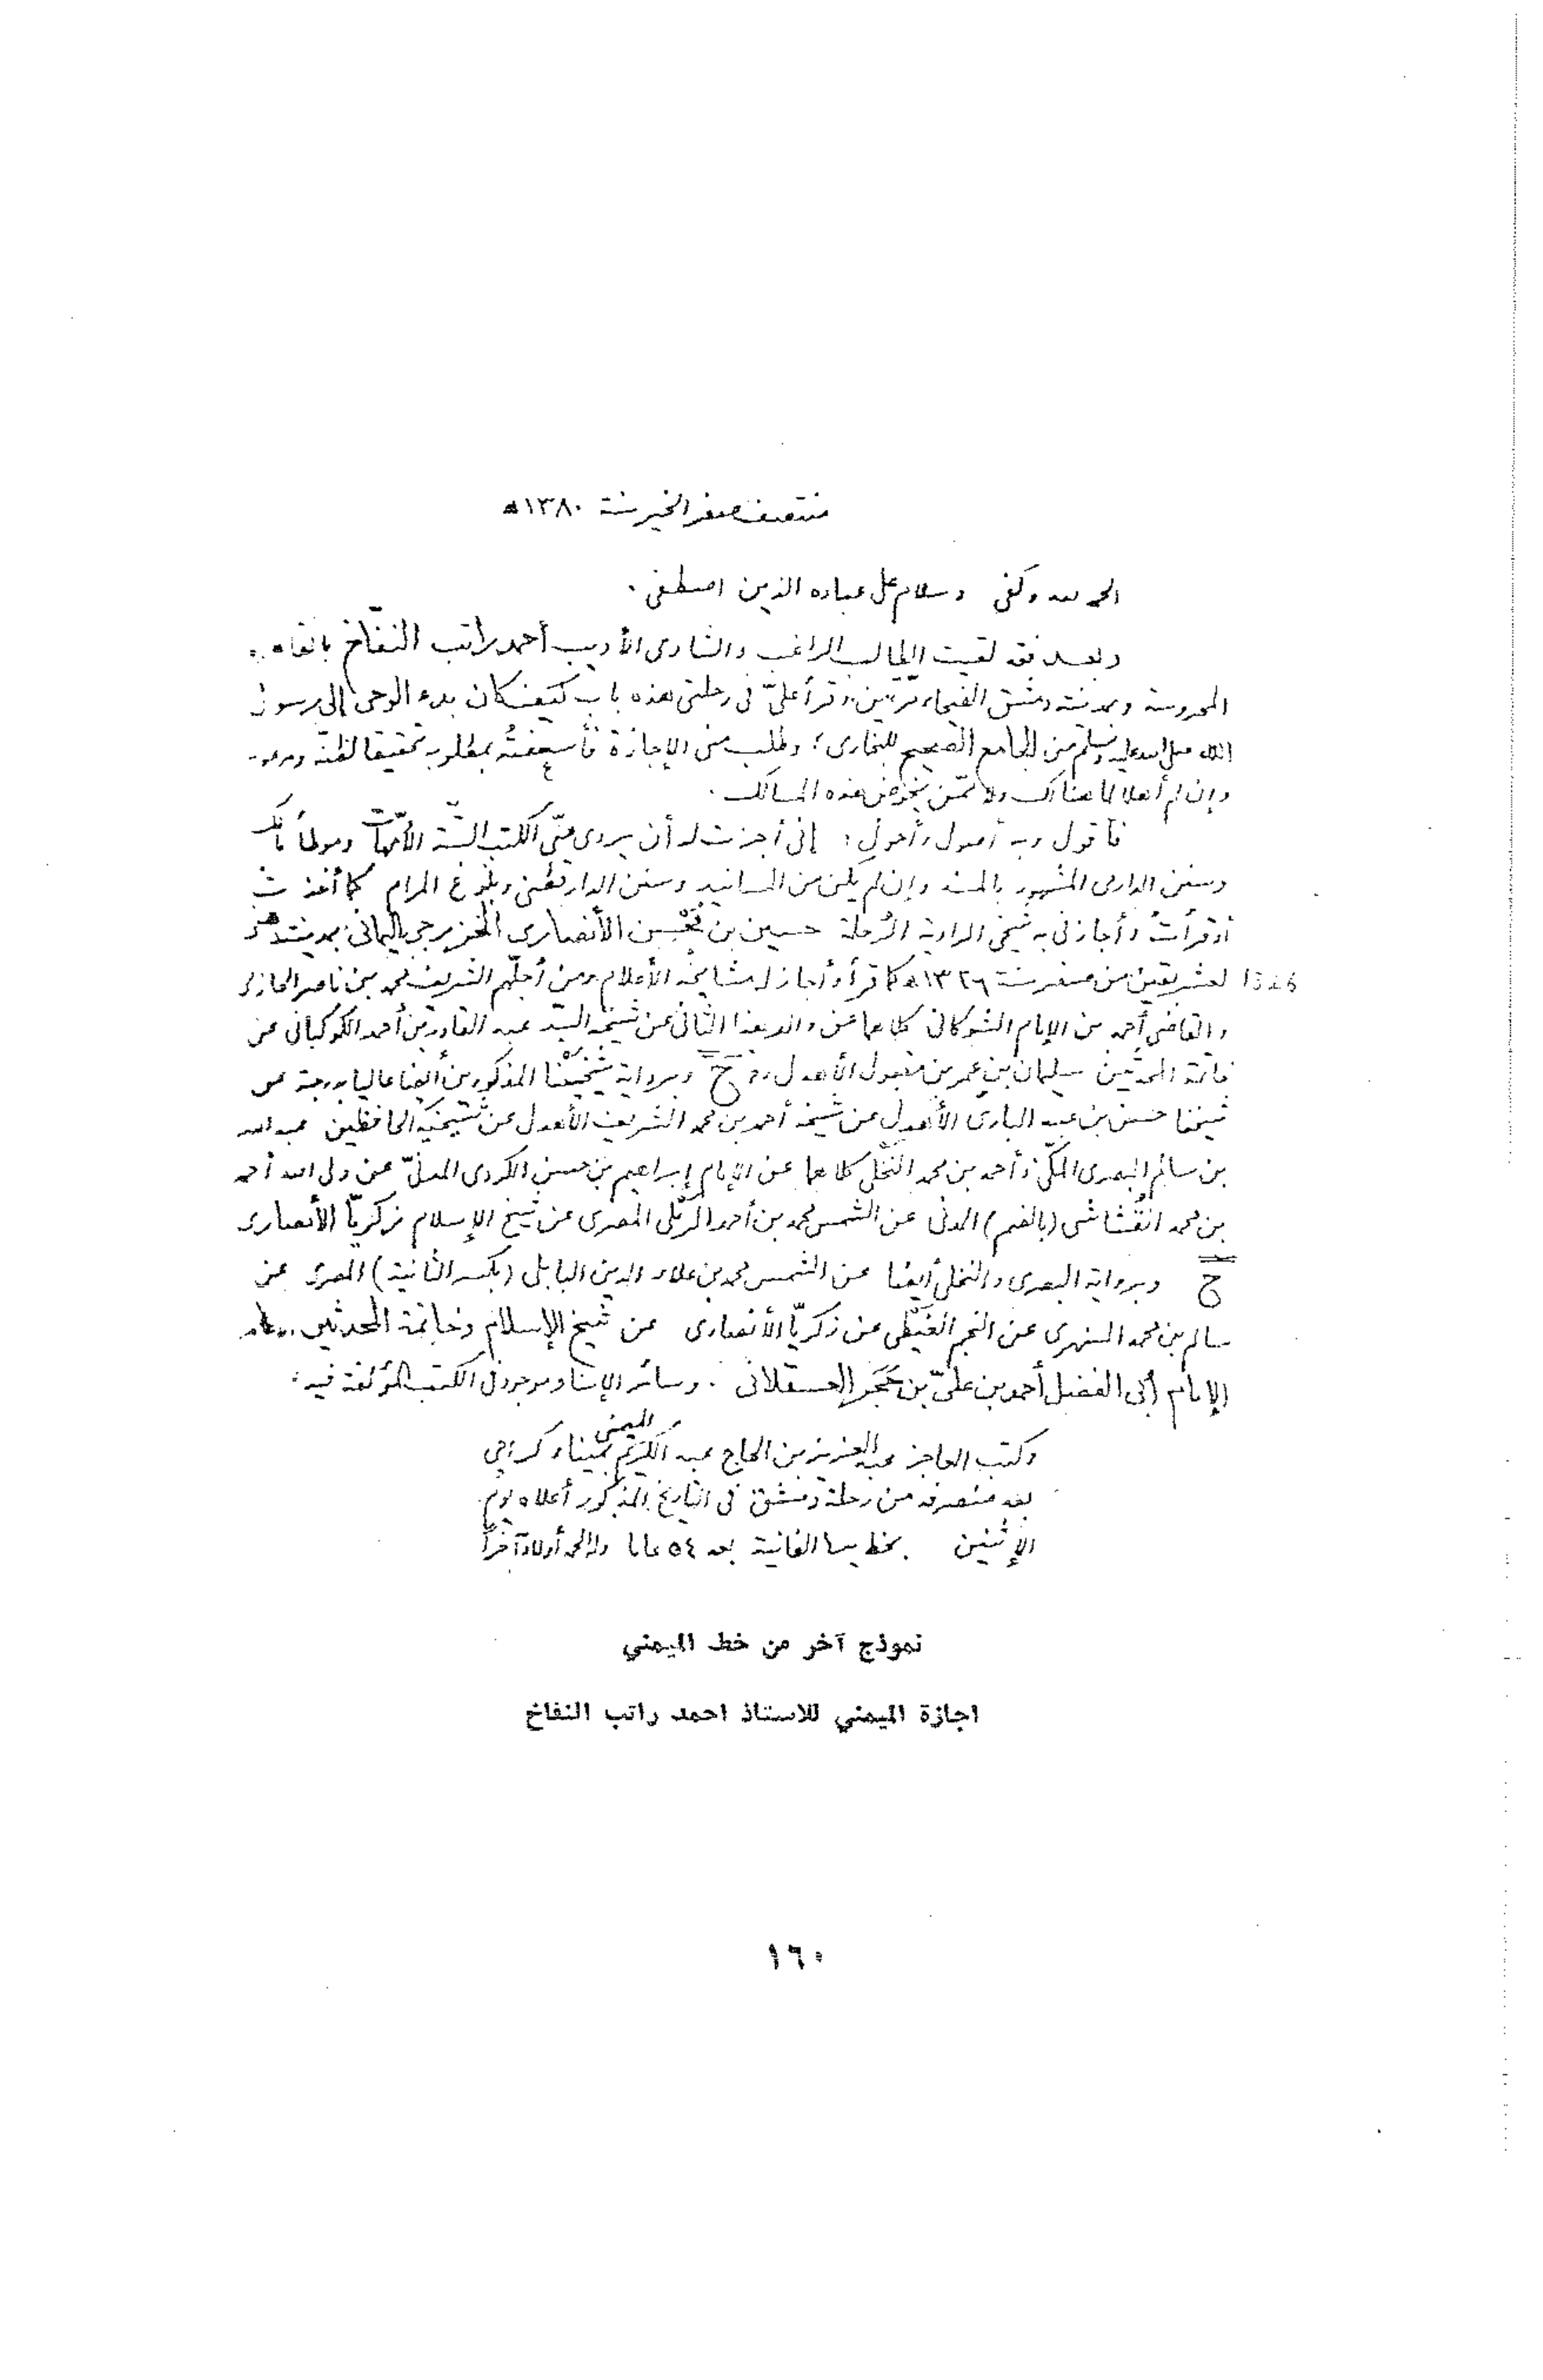 منتصف صفر الخير سنة ١٣٨٠ﻫ
الحمد لله وكفى وسلام على عباده الذين اصطفى .
وبعد فقد لقيت الطالب الراغب والشادى الأديب أحمد راتب النفّاخ بالقاهرة
المحروسة وبمدينة دمشق الفيحاء مرّتين، وقرأ علىّ فى رحلتى هذه باب كيف كان بدء الوحى إلى رسول
الله صلى الله عليه وسلم من الجامع الصحيح للبخارى؛ وطلب منى الإجازة فأسعفتُه بمطلوبه تحقيقا لظنّه
وإن لم أهلا لما هنالك ولا ممّن يخوض هذه المسالك .
فأقول وبه أصول وأحول : إنى أجزت له أن يروى عنّى الكتب الستّة الأمّهات وموطأ مالك
وسنن الدارمى المشهور بالمسند وإن لم يكن من المسانيد وسنن الدارقطنى وبلوغ المرام كما أخذت
أو قرأتُ وأجازنى به شيخى الراوية الرُحلة حسين بن مُحْسِن الأنصارى الخزرجى اليمانى بمدينة
لعشر بقين من صفر سنة ١٣٢٦ﻫ كما قرأ وأجاز له مشايخه الأعلام ومن أجلّهم الشريف محمد بن ناصر الحازمى
والقاضى أحمد بن الإمام الشوكانى كلاهما عن والد هذا الثانى عن شيخه السيّد عبد القادر بن أحمد الكوكبانى عن
خاتمة المحدّثين سليمان بن عمر بن مقبول الأهدل ح وبرواية شَيْخَيْنا المذكورين أيضا عاليا بدرجة عن
شيخنا حسن بن عبد البارى الأهدل عن شيخه أحمد بن محمد الشريف الأهدل عن شيخيه الحافظين عبد الله
بن سالم البصرى المكّى وأحمد بن محمد النَّخْلى كلاهما عن الإمام إبراهيم بن حسن الكردى المدنىّ عن ولى الله أحمد
بن محمد القُشاشى (بالضم) المدنى عن الشمس محمد بن أحمد الرَمْلى المصرى عن شيخ الإسلام زكريّا الأنصارى
ح وبرواية البصرى والنخلى أيضا عن الشمس محمد بن علاء الدين البابلى (بكسر الثانية) المصرى عن
سالم بن محمد السنهورى عن النجم الغَيْطى عن زكريّا الأنصارى عن شيخ الإسلام وخاتمة المحدثين
الإمام أبى الفضل أحمد بن علىّ بن حَجَر العسقلانى . وسائر الإسناد موجود فى الكتب المؤلفة فيه .
وكتب العاجز عبد العزيز بن الحاج عبد الكريم الميمنى بميناء كراچى
بعد منصرفه من رحلة دمشق فى التاريخ المذكور أعلاه يوم
الإثنين بخط يده الفانية بعد ٥٤ عاما ولله الحمد أولا وآخراً
نموذج آخر من خط الميمني
اجازة الميمني للاستاذ احمد راتب النفاخ
١٦٠